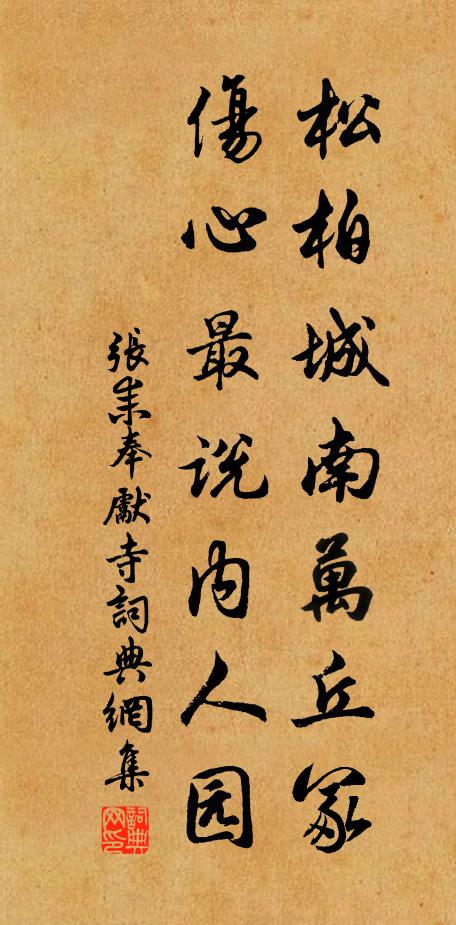 松柏城南萬丘冢
傷心最説内人园
張耒奉獻寺詞典網集
詞典網印